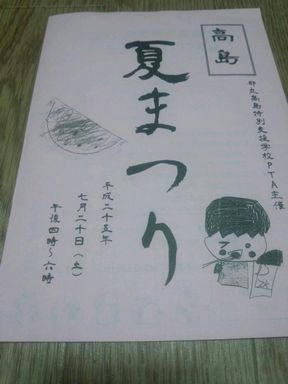 高島
都立高島特別支援学校PTA主催
夏まつり
平成二十五年
七月二十日(土)
午後四時~六時